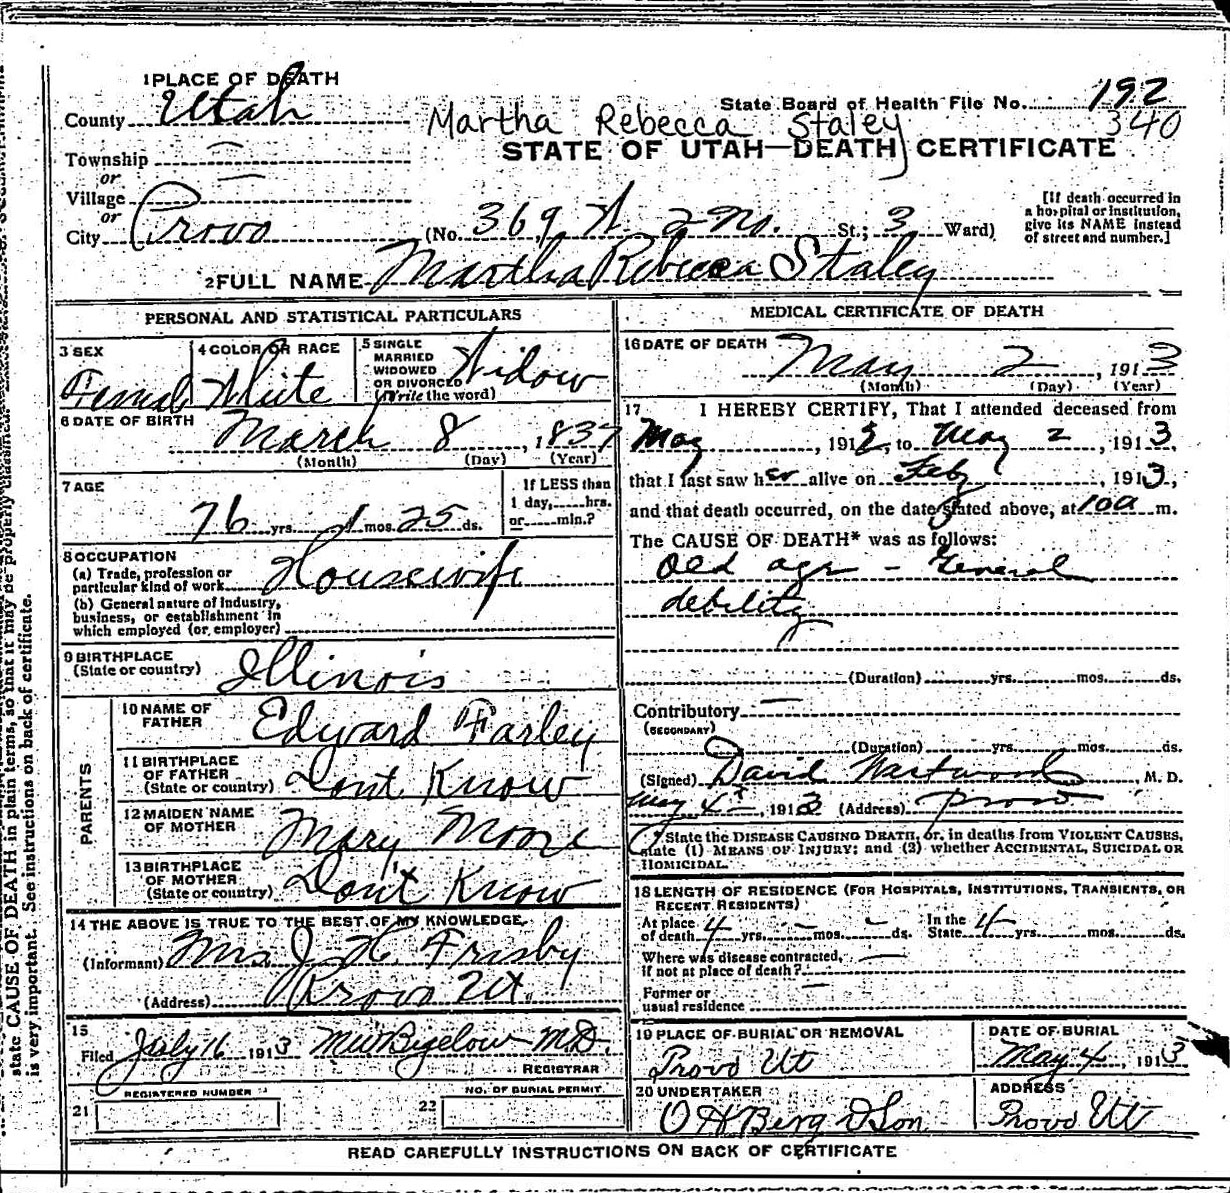 1 PLACE OF DEATH
County Utah
State Board of Health File No. 192
340
Martha Rebecca Staley
STATE OF UTAH—DEATH CERTIFICATE
Township
or
Village
or
City Provo (No. 369 W. 2 No. St.; 3 Ward)
[If death occurred in a hospital or institution, give its NAME instead of street and number.]
2 FULL NAME Martha Rebecca Staley
PERSONAL AND STATISTICAL PARTICULARS
3 SEX Female
4 COLOR OR RACE White
5 SINGLE MARRIED WIDOWED OR DIVORCED (Write the word) Widow
6 DATE OF BIRTH March 8, 1837
(Month) (Day) (Year)
7 AGE 76 yrs. 1 mos. 25 ds.
If LESS than 1 day,......hrs. or......min.?
8 OCCUPATION
(a) Trade, profession or particular kind of work Housewife
(b) General nature of Industry, business, or establishment in which employed (or employer)
9 BIRTHPLACE (State or country) Illinois
PARENTS
10 NAME OF FATHER Edward Farley
11 BIRTHPLACE OF FATHER (State or country) Dont Know
12 MAIDEN NAME OF MOTHER Mary Moore
13 BIRTHPLACE OF MOTHER (State or country) Don't Know
14 THE ABOVE IS TRUE TO THE BEST OF MY KNOWLEDGE
(Informant) Mrs J. H. Frisby
(Address) Provo Ut.
15 Filed July 16 1913 Bigelow M.D.
REGISTRAR
REGISTERED NUMBER
21
NO. OF BURIAL PERMIT
22
MEDICAL CERTIFICATE OF DEATH
16 DATE OF DEATH May 2, 1913
(Month) (Day) (Year)
17 I HEREBY CERTIFY, That I attended deceased from
May, 1912, to May 2, 1913,
that I last saw her alive on Feby, 1913,
and that death occurred, on the date stated above, at 10 a m.
The CAUSE OF DEATH* was as follows:
Old age - General
debility
(Duration) yrs. mos. ds.
Contributory —
(SECONDARY)
(Duration) yrs. mos. ds.
(Signed) David Westwood, M. D.
May 4th, 1913 (Address) Provo
* State the DISEASE CAUSING DEATH, or, in deaths from VIOLENT CAUSES,
state (1) MEANS OF INJURY; and (2) whether ACCIDENTAL, SUICIDAL OR
HOMICIDAL.
18 LENGTH OF RESIDENCE (FOR HOSPITALS, INSTITUTIONS, TRANSIENTS, OR RECENT RESIDENTS)
At place of death 4 yrs. - mos. - ds. In the State 4 yrs. mos. ds.
Where was disease contracted, if not at place of death? —
Former or usual residence —
19 PLACE OF BURIAL OR REMOVAL Provo Ut
DATE OF BURIAL May 4, 1913
20 UNDERTAKER O H Berg & Son
ADDRESS Provo Ut
READ CAREFULLY INSTRUCTIONS ON BACK OF CERTIFICATE
state CAUSE OF DEATH in plain terms, so that it may be properly classified.
is very important. See instructions on back of certificate.